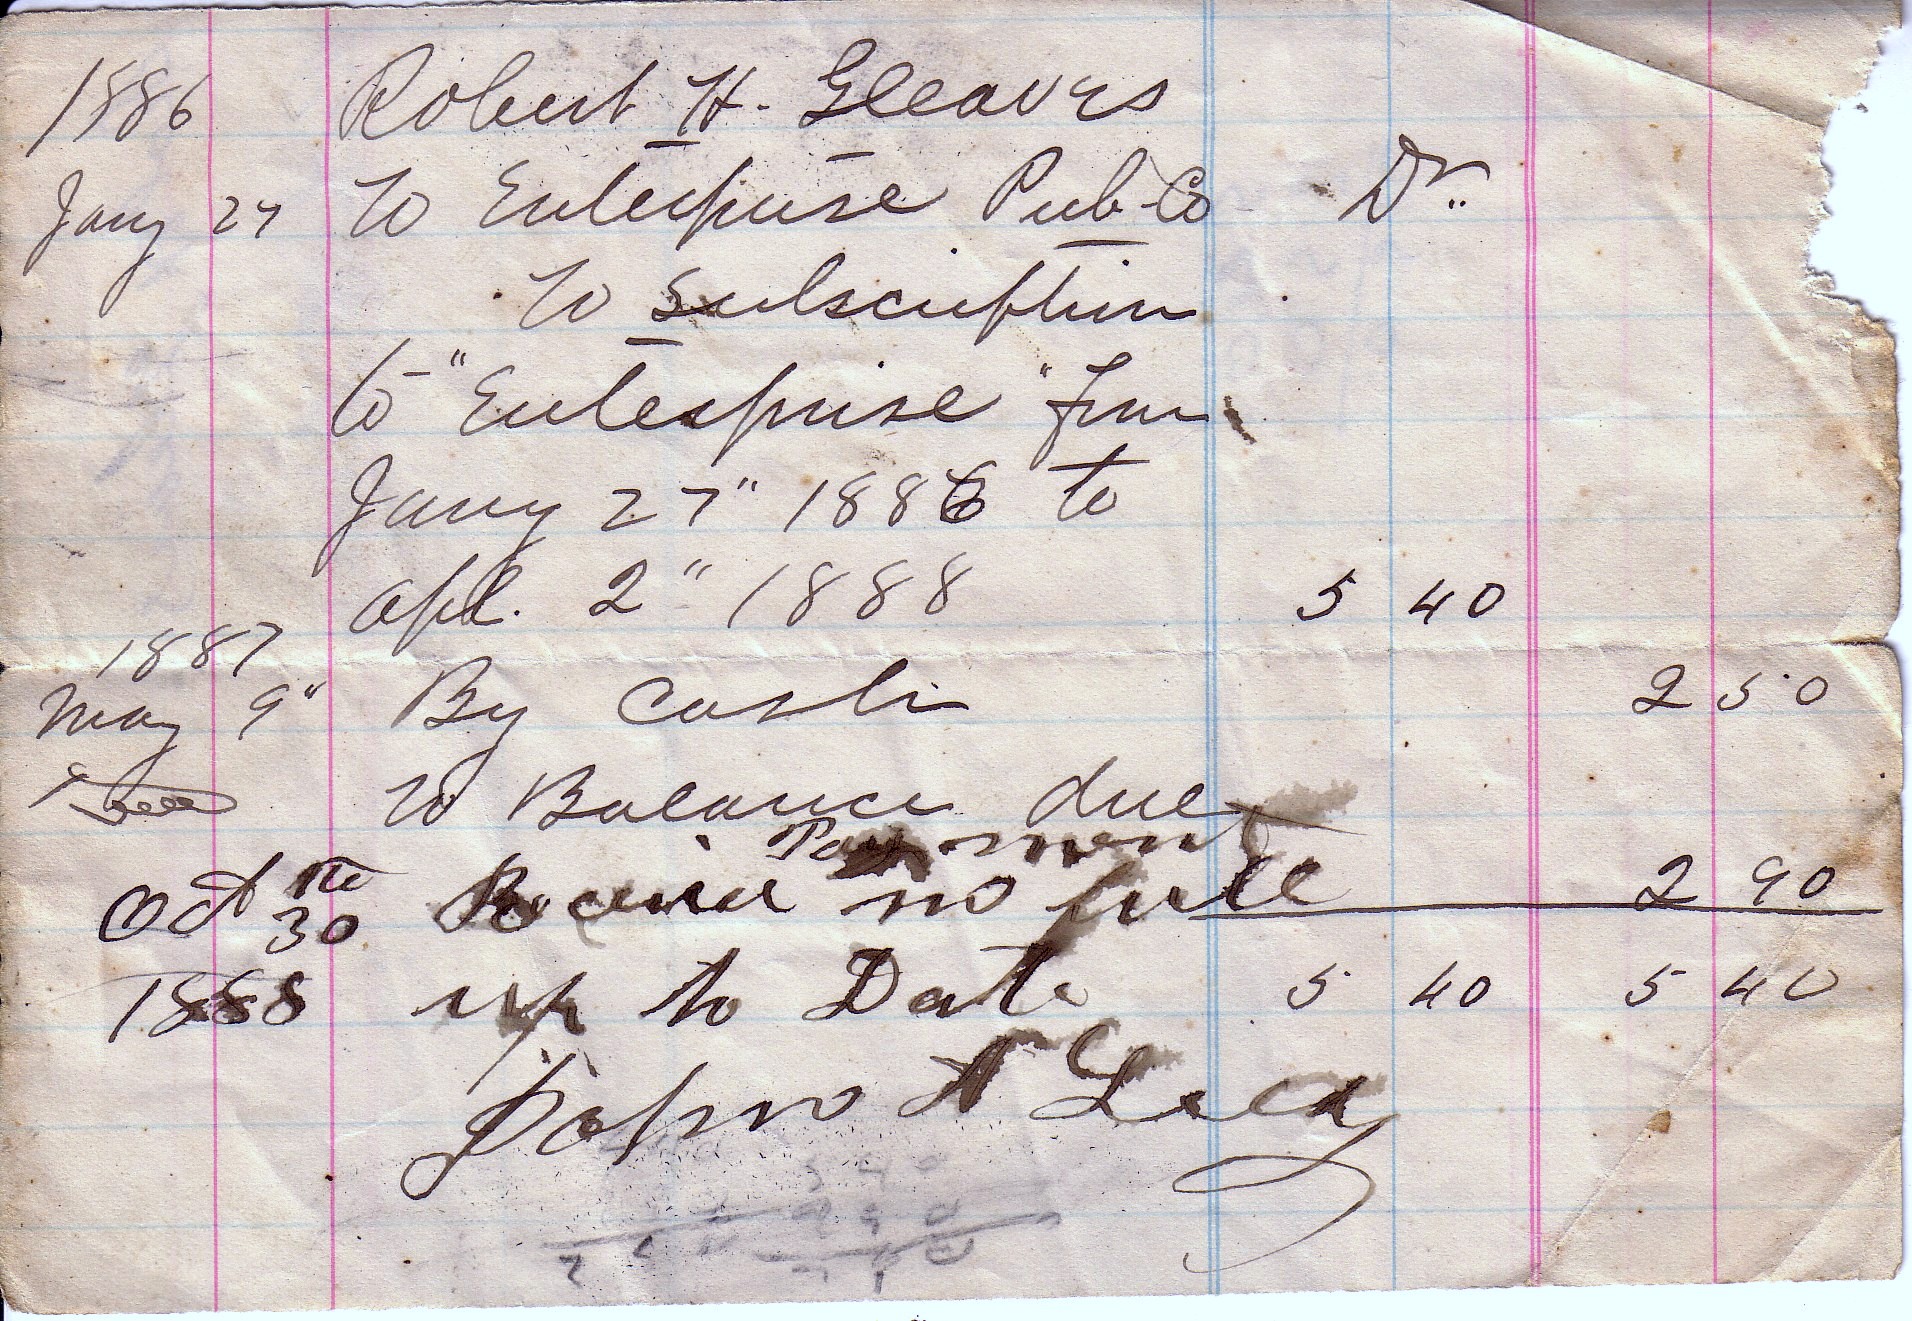 1886 Robert H. Gleaves
Jany 27 To Enterprise Pub Co Dr.
To Subscription
to "Enterprise" from
Jany 27" 1886 to
Apl. 2" 1888 5 40
1887
May 9" By Cash 2 50
To Balance due
Payment
Oct the 30 in full 2 90
1888 up to Date 5 40 5 40
John A